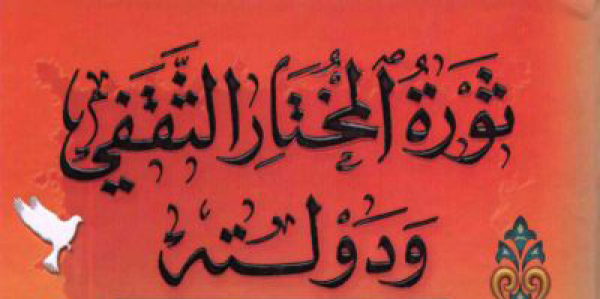 ثَوْرَةُ المُخْتَارِ الثَّقَفِي
وَدَوْلَتُه